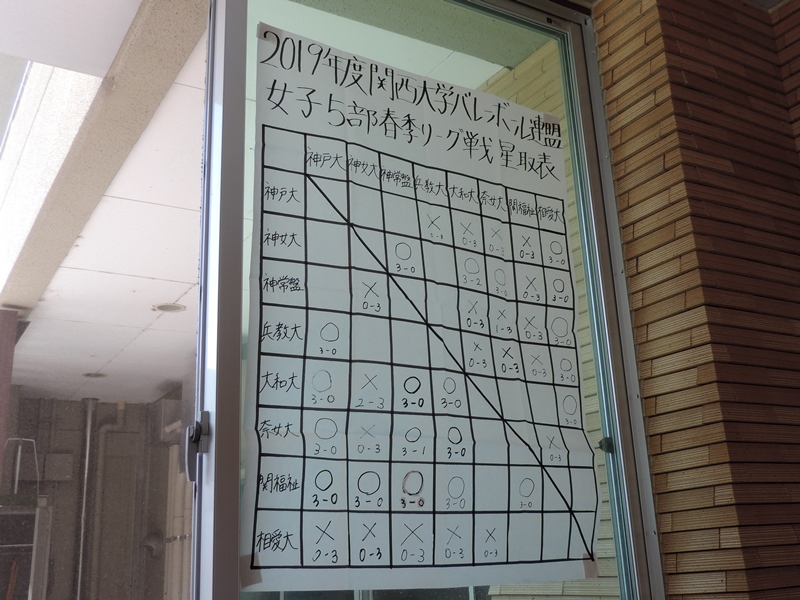 2019年度関西大学バレーボール連盟
女子5部春季リーグ戦星取表
神戸大 神女大 神常盤 兵教大 大和大 奈女大 関福祉 相愛大
神戸大 × × × × ○
0-3 0-3 0-3 0-3 3-0
神女大 ○ ○ ○ × ○
3-0 3-2 3-0 0-3 3-0
神常盤 × × × × ○
0-3 0-3 1-3 0-3 3-0
兵教大 ○ × × × ○
3-0 0-3 0-3 0-3 3-0
大和大 ○ × ○ ○ ○
3-0 2-3 3-0 3-0 3-0
奈女大 ○ × ○ ○ ×
3-0 0-3 3-1 3-0 0-3
関福祉 ○ ○ ○ ○ ○
3-0 3-0 3-0 3-0 3-0
相愛大 × × × × ×
0-3 0-3 0-3 0-3 0-3